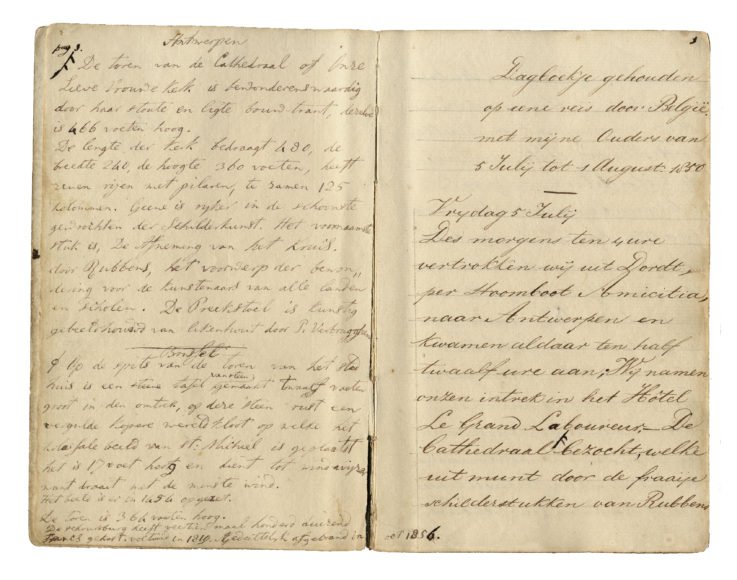 pag 3.
Antwerpen
De toren van de Cathedraal of Onze
Lieve Vrouwe Kerk is bewonderenswaardig
door haar stoute en ligte bouwtrant, dezelve
is 466 voeten hoog.
De lengte der kerk bedraagt 480, de
breedte 240, de hoogte 360 voeten, heeft
zeven rijen met pilaren, te samen 125
kolommen. Geene is rijker in de schoonste
gewrochten der Schilderkunst. Het voornaamste
stuk is, De Afneming van het Kruis.
door Rubbens, het voorwerp der bewon„
dering voor de kunstenaars van alle landen
en scholen. De Preekstoel is kunstig
gebeeldhouwd van eikenhout door P. Verbruggen
Brussel
Op de spits van de toren van het stad
huis is een steene tafel gemaakt twaalf voeten
groot in den omtrek, op deze steen rust een
vergulde kopere wereldkloot op welke het
kolossale beeld van St. Michael is geplaatst
het is 17 voet hoog en dient tot windwijzer
want draait met de minste wind.
Het beeld is er in 1454 op gezet.
De toren is 364 voeten hoog.
De schouwburg heeft veertien maal honderd duizend
Francs gekost. voltooid in 1819. Gedeeltelijk afgebrand in
oct 1856.
3
Dagboekje gehouden
op eene reis door België.
met mijne Ouders van
5 Julij tot 1 August. 1850
Vrydag 5 Julij
Des morgens ten 4 ure
vertrokken wij uit Dordt,
per Stoomboot Amicitia,
naar Antwerpen en
kwamen aldaar ten half
twaalf ure aan; Wij namen
onzen intrek in het Hôtel
Le Grand Laboureur.– De
Cathedraal bezocht, welke
uit munt door de fraaije
schilderstukken van Rubbens